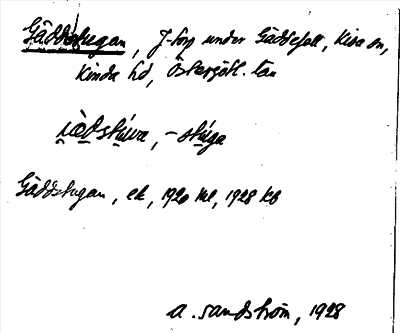 Gäddstugan, f. torp under Gäddefall, Kisa sn,
Kinda hd, Östergötl. län
-stúga
Gäddstugan, ek, 1920 ml, 1928 kb
A. Sandström, 1928